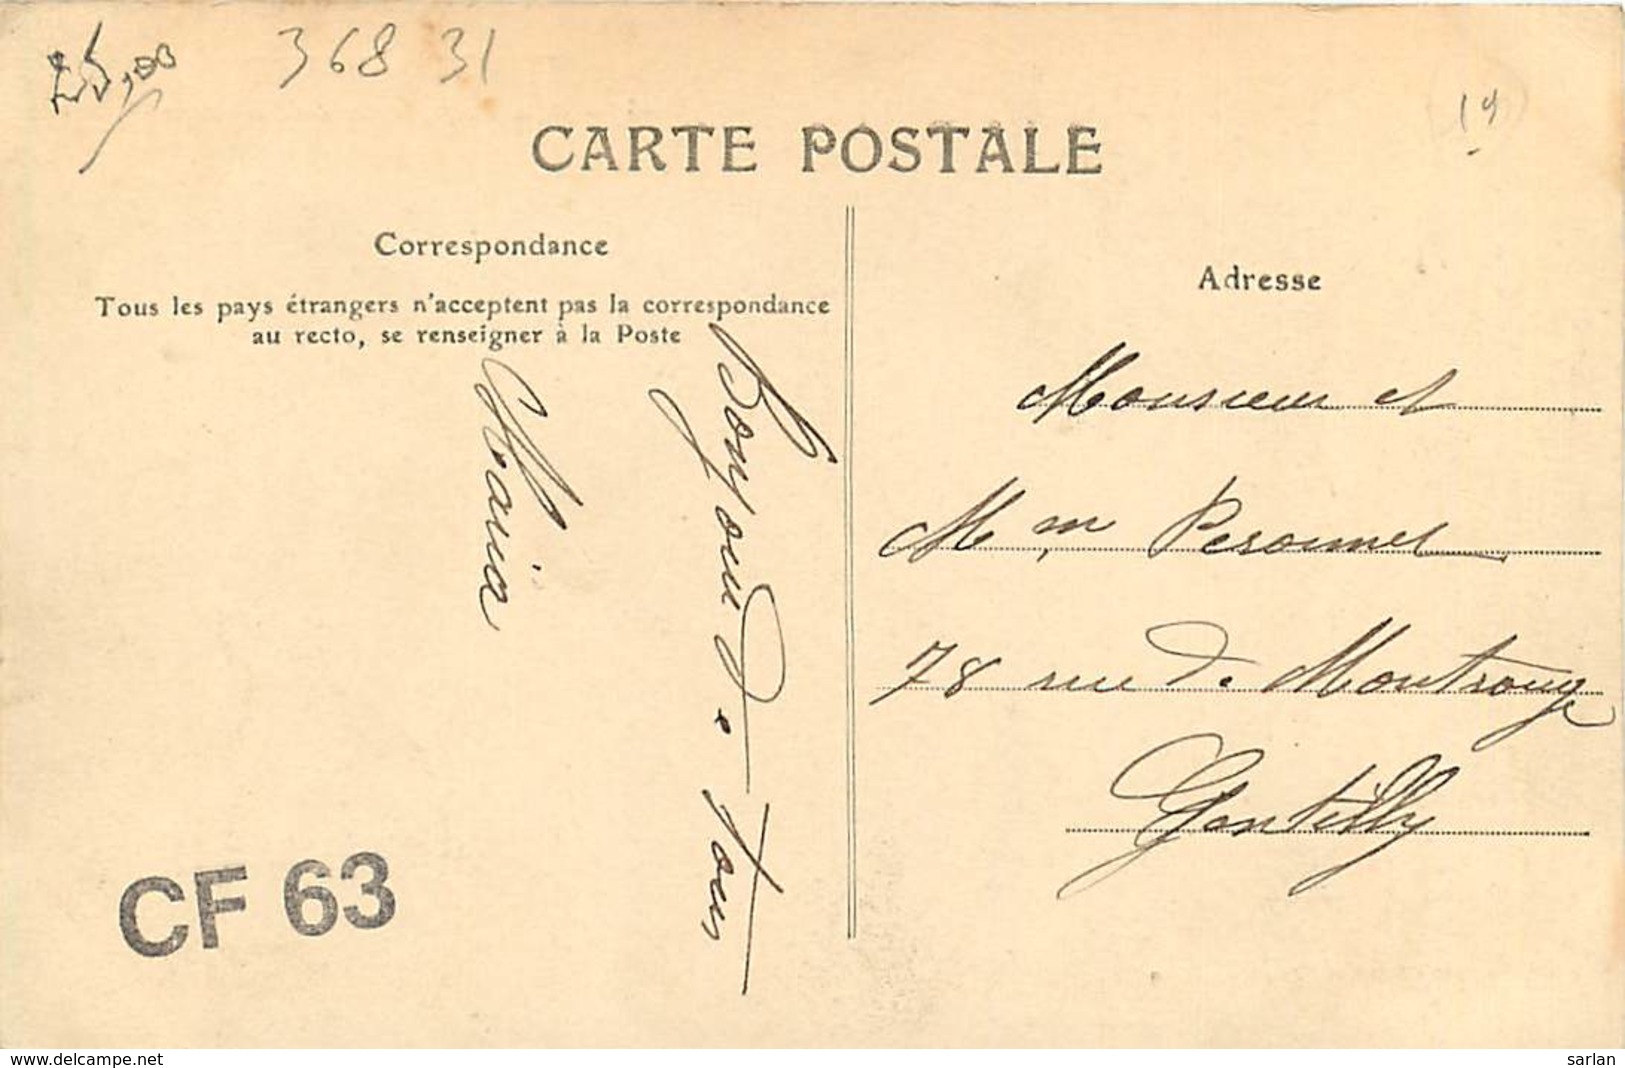 25,00
368 31
19
CARTE POSTALE
Correspondance
Tous les pays étrangers n'acceptent pas la correspondance
au recto, se renseigner à la Poste
Bonjour d. tous
Maria
Adresse
Monsieur et
Mm Personnet
78 rue d. Montrouge
Gentilly
CF 63
www.delcampe.net
sarlan